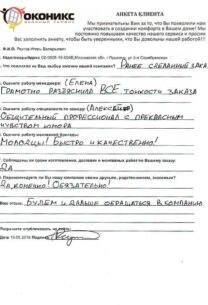 оконикс
АНКЕТА КЛИЕНТА
Мы признательны Вам за то, что Вы позволили нам
участвовать в создании комфорта в Вашем доме! Мы
постоянно повышаем качество нашего сервиса и просим
Вас заполнить анкету, чтобы быть уверенными, что Вы довольны нашей работой!!!
Ф.И.О. Реутов Игорь Валерьевич
что повлияло на Ваш выбор именно нашей компании? РАНЕЕ СДЕЛАННЫЙ ЗАКАЗ
Оцените работу менеджера: (ЕЛЕНА)
ГРАМОТНО РАЗЪЯСНИЛА ВСЕ ТОНКОСТИ ЗАКАЗА
Оцените работу специалиста по замеру: (АЛЕКСАНДР)
ОБЩИТЕЛЬНЫЙ ПРОФЕССИОНАЛ С ПРЕКРАСНЫМ
ЧУВСТВОМ ЮМОРА
Оцените работу монтажной бригады:
МОЛОДЦЫ! БЫСТРО И КАЧЕСТВЕННО!
Соблюдены ли сроки изготовления, доставки и монтажных работ по Вашему заказу:
ДА
Порекомендуете ли Вы нашу компанию своим друзьям, родственникам, знакомым?
ДА, КОНЕЧНО! ОБЯЗАТЕЛЬНО!
Ваш отзыв: БУДЕМ И ДАЛЬШЕ ОБРАЩАТЬСЯ В КОМПАНИЮ
Подпись